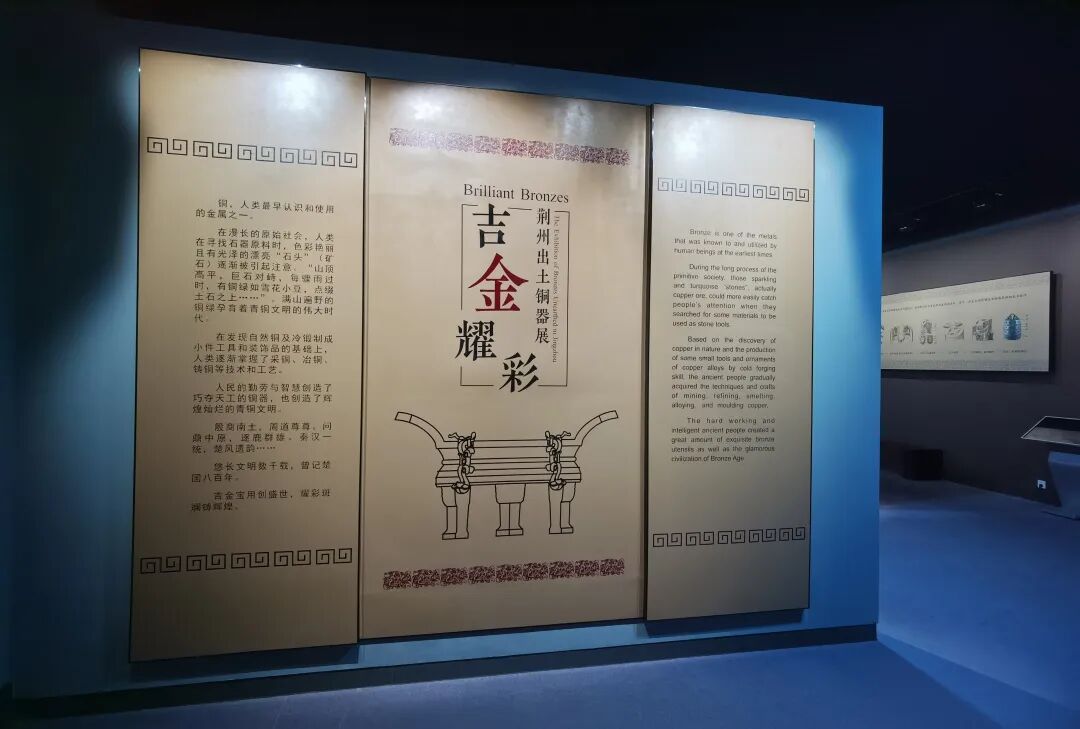 铜，人类最早认识和使用
的金属之一。
在漫长的原始社会，人类
在寻找石器原料时，色彩艳丽
且有光泽的漂亮“石头”（矿
石）逐渐被引起注意。“山顶
高平，巨石对峙，每骤雨过
时，有铜绿如雪花小豆，点缀
土石之上……”。满山遍野的
铜绿孕育着青铜文明的伟大时
代。
在发现自然铜及冷锻制成
小件工具和装饰品的基础上，
人类逐渐掌握了采铜、冶铜、
铸铜等技术和工艺。
人民的勤劳与智慧创造了
巧夺天工的铜器，也创造了辉
煌灿烂的青铜文明。
殷商南土，周道尊尊，问
鼎中原，逐鹿群雄。秦汉一
统，楚风遗韵……
悠长文明数千载，曾记楚
国八百年。
吉金宝用创盛世，耀彩斑
斓铸辉煌。
Brilliant Bronzes
吉金耀彩
荆州出土铜器展
The Exhibition of Bronzes Unearthed in Jingzhou
Bronze is one of the metals
that was known to and utilized by
human beings at the earliest times.
During the long process of the
primitive society, those sparkling
and turquoise "stones", actually
copper ore, could more easily catch
people's attention when they
searched for some materials to be
used as stone tools.
Based on the discovery of
copper in nature and the production
of some small tools and ornaments
of copper alloys by cold forging
skill, the ancient people gradually
acquired the techniques and crafts
of mining, refining, smelting,
alloying, and moulding copper.
The hard working and
intelligent ancient people created a
great amount of exquisite bronze
utensils as well as the glamorous
civilization of Bronze Age.